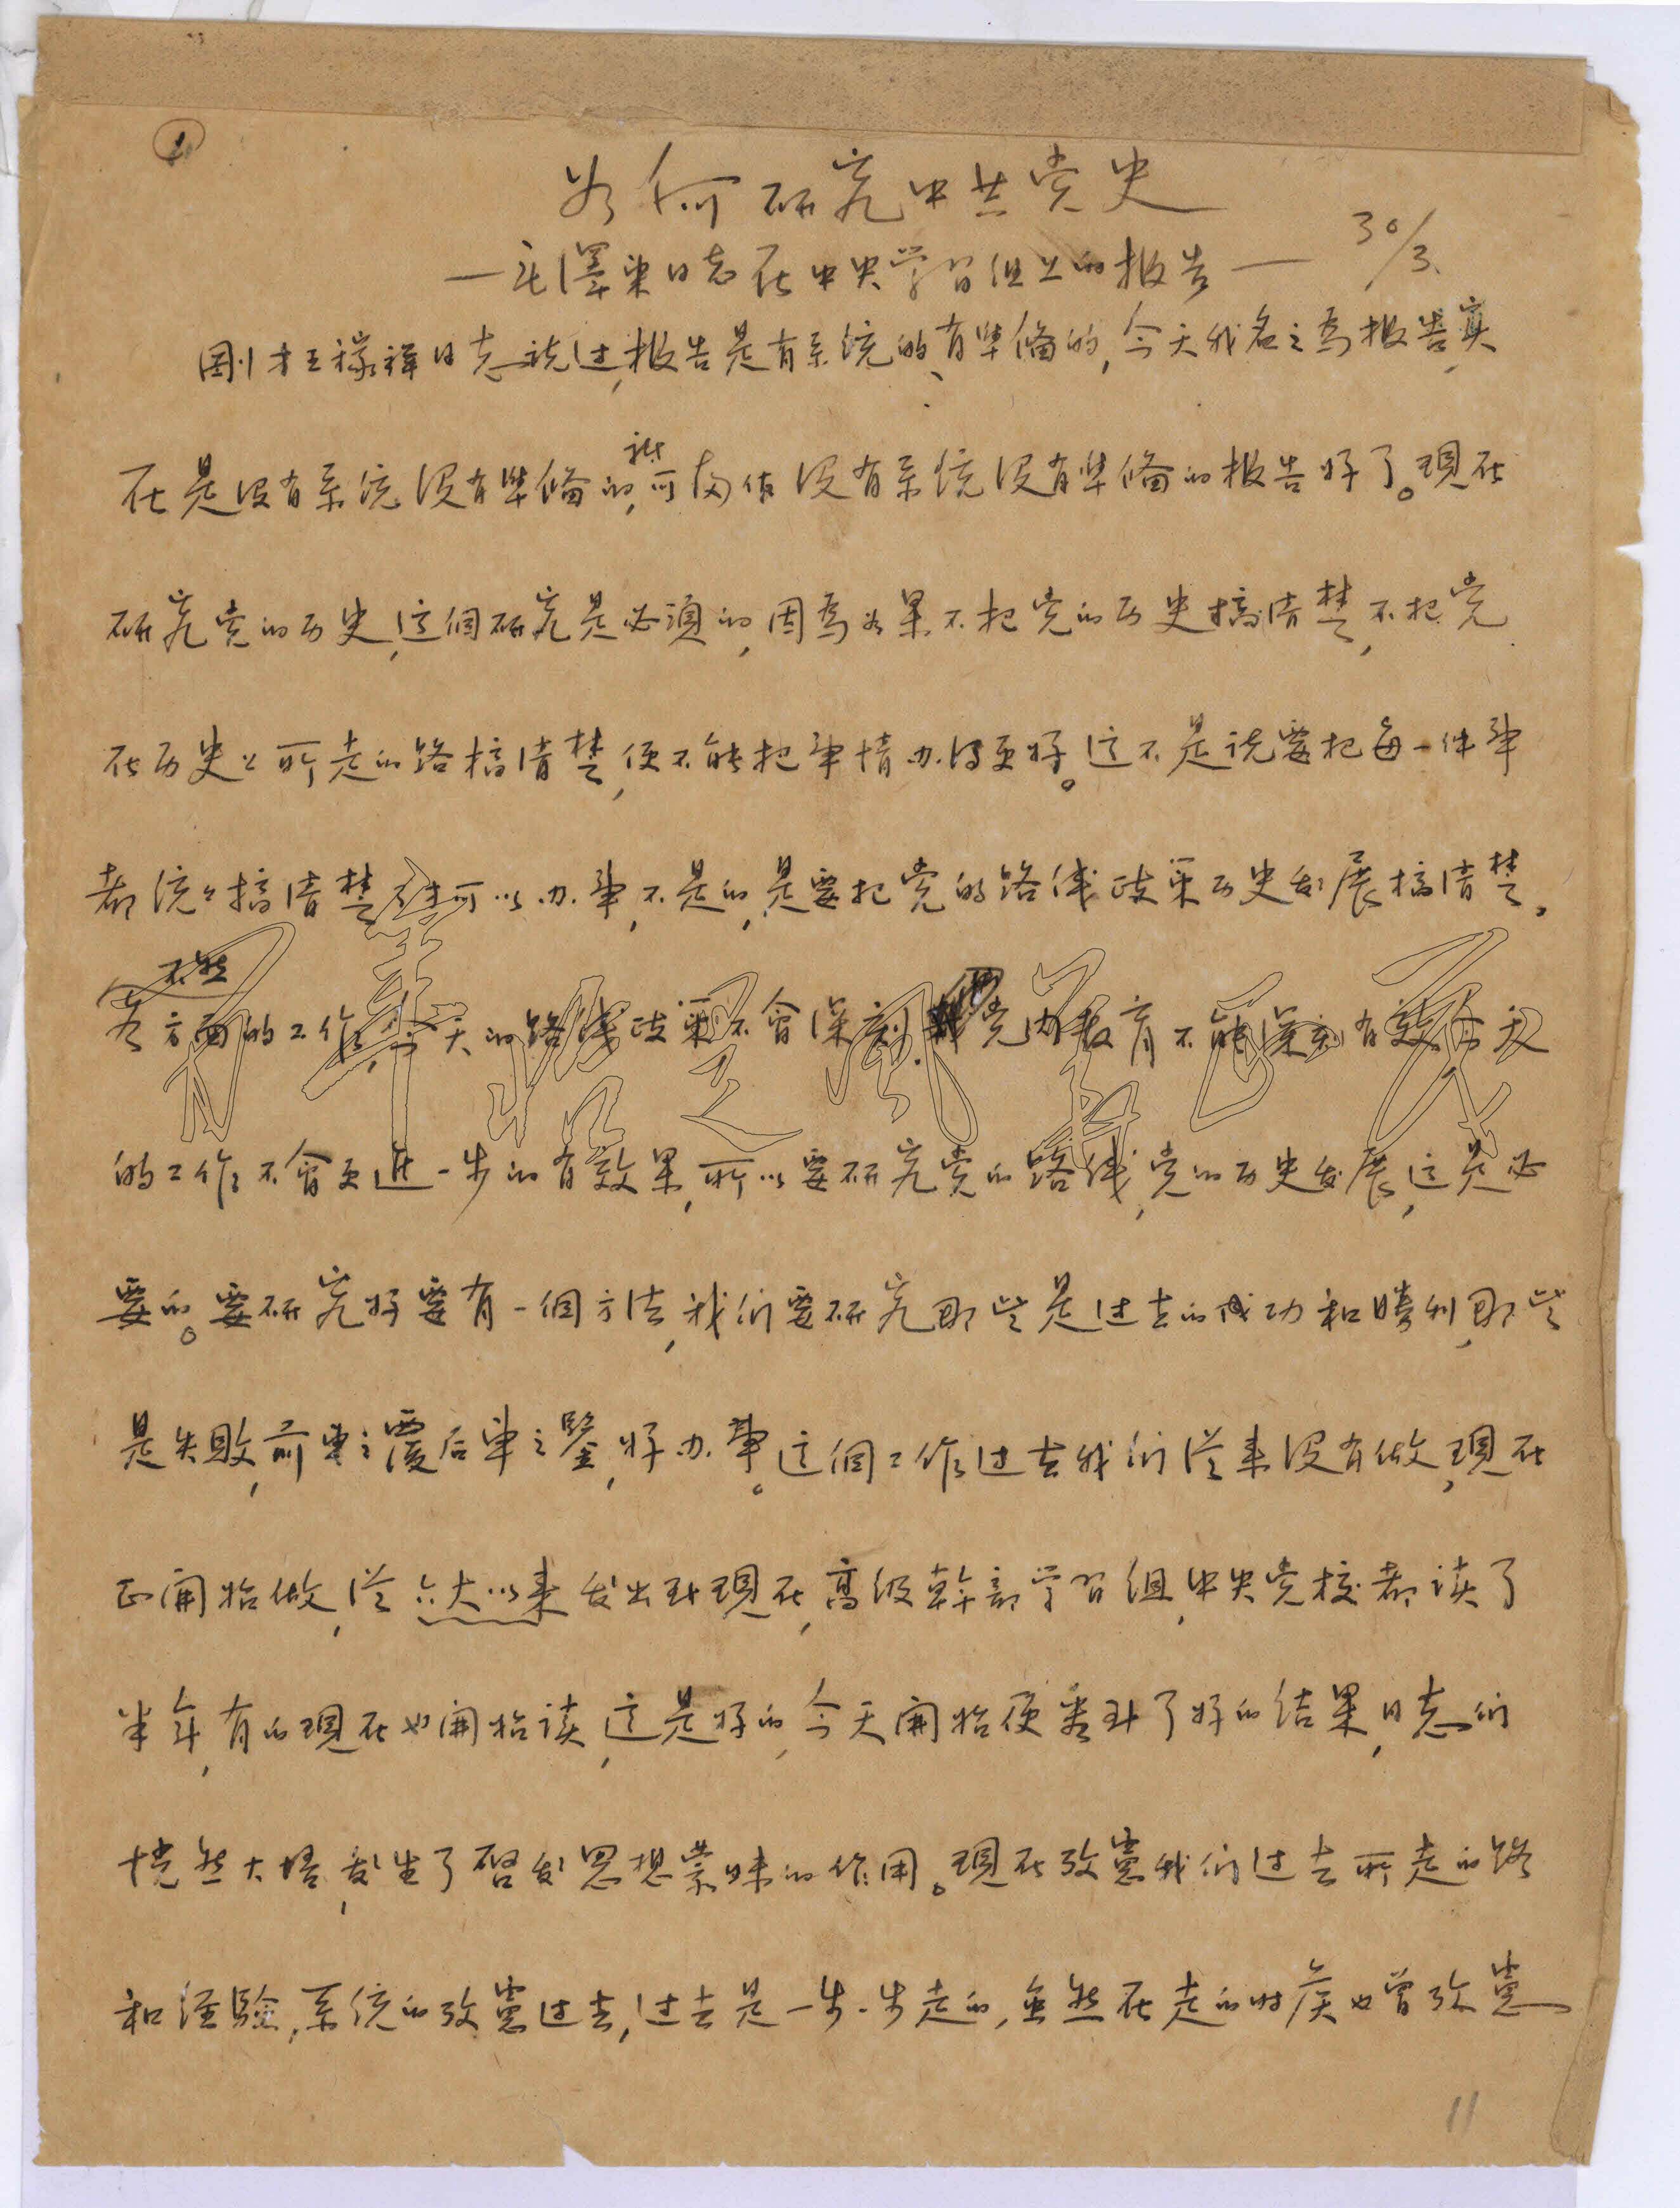 1
如何研究中共党史
—毛澤東同志在中央学習组上的报告— 30/3.
刚才王稼祥同志说过,报告是有系统的、有準備的,今天我名之為报告,实
在是没有系统没有準備的,就可当作没有系统没有準備的报告好了。現在
研究党的历史,这個研究是必須的,因為如果不把党的历史搞清楚,不把党
在历史上所走的路搞清楚,便不能把事情办得更好。这不是说要把每一件事
都统统搞清楚才可以办事,不是的,是要把党的路线政策历史发展搞清楚,
不然
各方面的工作,今天的路线政策不會深刻,党内教育不能深刻有效,今天
的工作不會更進一步的有效果,所以要研究党的路线,党的历史发展,这是必
要的。要研究好要有一個方法,我们要研究那些是过去的成功和勝利,那些
是失敗,前車之覆后車之鑒,好办事。这個工作过去我们從来没有做,現在
正開始做,從六大以来发出到現在,高级幹部学習组,中央党校都读了
半年,有的現在也開始读,这是好的,今天開始便看到了好的结果,同志们
恍然大悟,发生了啓发思想蒙昧的作用。現在攷慮我们过去所走的路
和经験,系统的攷慮过去,过去是一步一步走的,虽然在走的时候也曾攷慮
11